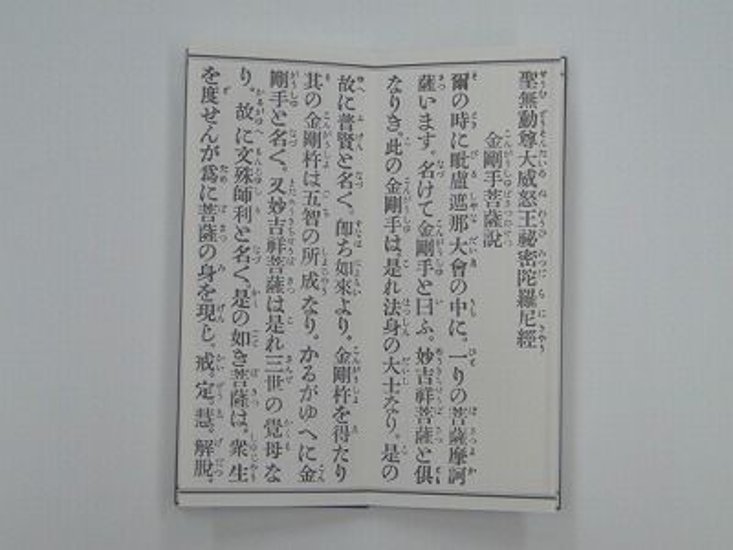 聖無動尊大威怒王祕密陀羅尼經
金剛手菩薩説
爾の時に毗盧遮那大會の中に。一りの菩薩摩訶
薩います。名けて金剛手と曰ふ。妙吉祥菩薩と俱
なりき。此の金剛手は。是れ法身の大士なり。是の
故に普賢と名く。卽ち如來より。金剛杵を得たり
其の金剛杵は五智の所成なり。かるがゆへに金
剛手と名く。又妙吉祥菩薩は是れ三世の覺母な
り。故に文殊師利と名く。是の如き菩薩は。衆生
を度せんが爲に菩薩の身を現し。戒。定。慧。解脫。